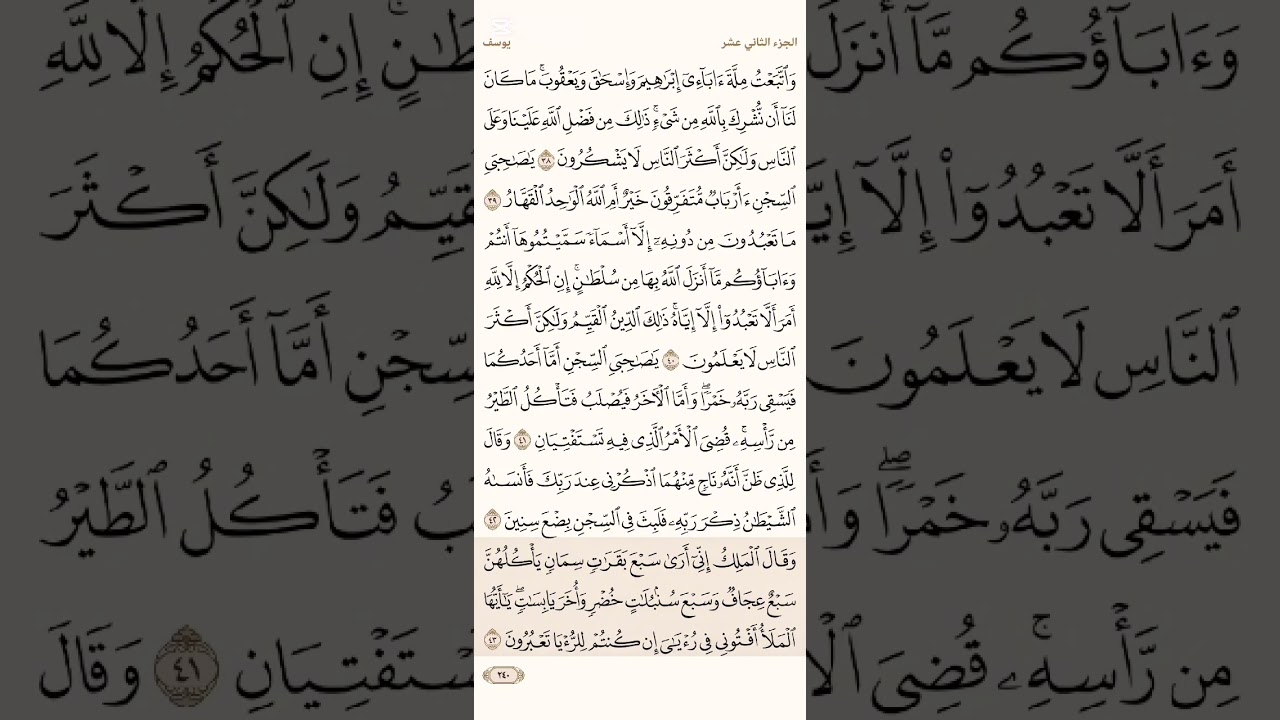 الجزء الثاني عشر
يوسف
وَٱتَّبَعۡتُ مِلَّةَ ءَابَآءِيٓ إِبۡرَٰهِيمَ وَإِسۡحَٰقَ وَيَعۡقُوبَۚ مَا كَانَ
لَنَآ أَن نُّشۡرِكَ بِٱللَّهِ مِن شَيۡءٖۚ ذَٰلِكَ مِن فَضۡلِ ٱللَّهِ عَلَيۡنَا وَعَلَى
ٱلنَّاسِ وَلَٰكِنَّ أَكۡثَرَ ٱلنَّاسِ لَا يَشۡكُرُونَ ٣٨ يَٰصَٰحِبَيِ
ٱلسِّجۡنِ ءَأَرۡبَابٞ مُّتَفَرِّقُونَ خَيۡرٌ أَمِ ٱللَّهُ ٱلۡوَٰحِدُ ٱلۡقَهَّارُ ٣٩
مَا تَعۡبُدُونَ مِن دُونِهِۦٓ إِلَّآ أَسۡمَآءٗ سَمَّيۡتُمُوهَآ أَنتُمۡ
وَءَابَآؤُكُم مَّآ أَنزَلَ ٱللَّهُ بِهَا مِن سُلۡطَٰنٍۚ إِنِ ٱلۡحُكۡمُ إِلَّا لِلَّهِ
أَمَرَ أَلَّا تَعۡبُدُوٓاْ إِلَّآ إِيَّاهُۚ ذَٰلِكَ ٱلدِّينُ ٱلۡقَيِّمُ وَلَٰكِنَّ أَكۡثَرَ
ٱلنَّاسِ لَا يَعۡلَمُونَ ٤٠ يَٰصَٰحِبَيِ ٱلسِّجۡنِ أَمَّآ أَحَدُكُمَا
فَيَسۡقِي رَبَّهُۥ خَمۡرٗاۖ وَأَمَّا ٱلۡأٓخَرُ فَيُصۡلَبُ فَتَأۡكُلُ ٱلطَّيۡرُ
مِن رَّأۡسِهِۦۚ قُضِيَ ٱلۡأَمۡرُ ٱلَّذِي فِيهِ تَسۡتَفۡتِيَانِ ٤١ وَقَالَ
لِلَّذِي ظَنَّ أَنَّهُۥ نَاجٖ مِّنۡهُمَا ٱذۡكُرۡنِي عِندَ رَبِّكَ فَأَنسَىٰهُ
ٱلشَّيۡطَٰنُ ذِكۡرَ رَبِّهِۦ فَلَبِثَ فِي ٱلسِّجۡنِ بِضۡعَ سِنِينَ ٤٢
وَقَالَ ٱلۡمَلِكُ إِنِّيٓ أَرَىٰ سَبۡعَ بَقَرَٰتٖ سِمَانٖ يَأۡكُلُهُنَّ
سَبۡعٌ عِجَافٞ وَسَبۡعَ سُنۢبُلَٰتٍ خُضۡرٖ وَأُخَرَ يَابِسَٰتٖۖ يَٰٓأَيُّهَا
ٱلۡمَلَأُ أَفۡتُونِي فِي رُءۡيَٰيَ إِن كُنتُمۡ لِلرُّءۡيَا تَعۡبُرُونَ ٤٣
٢٤٠